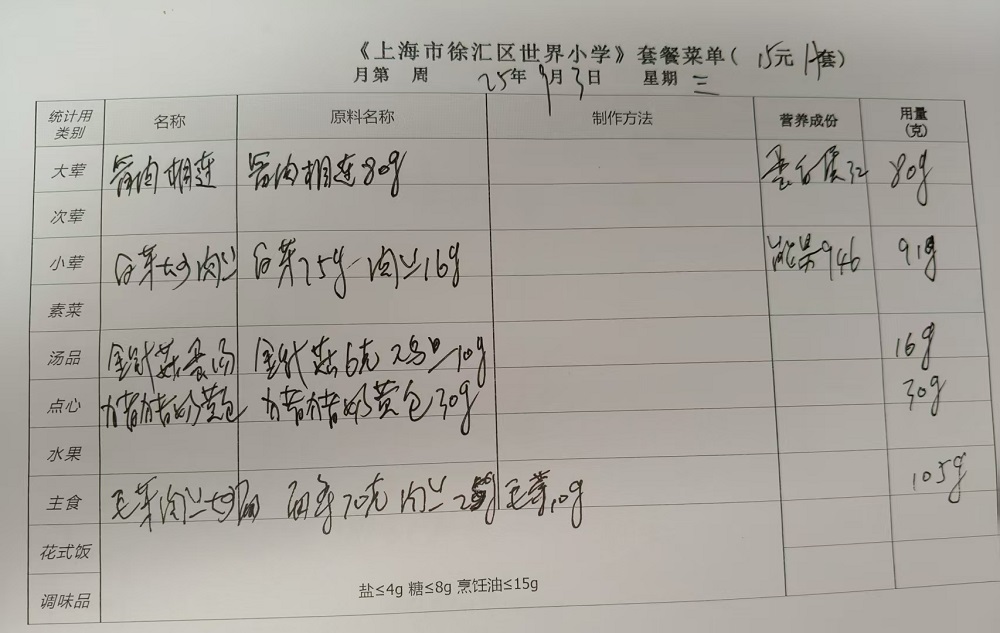 《上海市徐汇区世界小学》套餐菜单( 15元 套)
月第 周 25年9月3日 星期 三
统计用类别 名称 原料名称 制作方法 营养成份 用量(克)
大荤 骨肉相连 骨肉相连80g 蛋白质32 80g
次荤
小荤 白菜炒肉丝 白菜75g 肉丝16g 能量946 91g
素菜
汤品 金针菇蛋汤 金针菇6克 鸡蛋10g 16g
点心 猪猪奶黄包 猪猪奶黄包30g 30g
水果
主食 毛菜肉丝炒面 面条70克 肉丝25g 毛菜10g 105g
花式饭
调味品 盐≤4g 糖≤8g 烹饪油≤15g